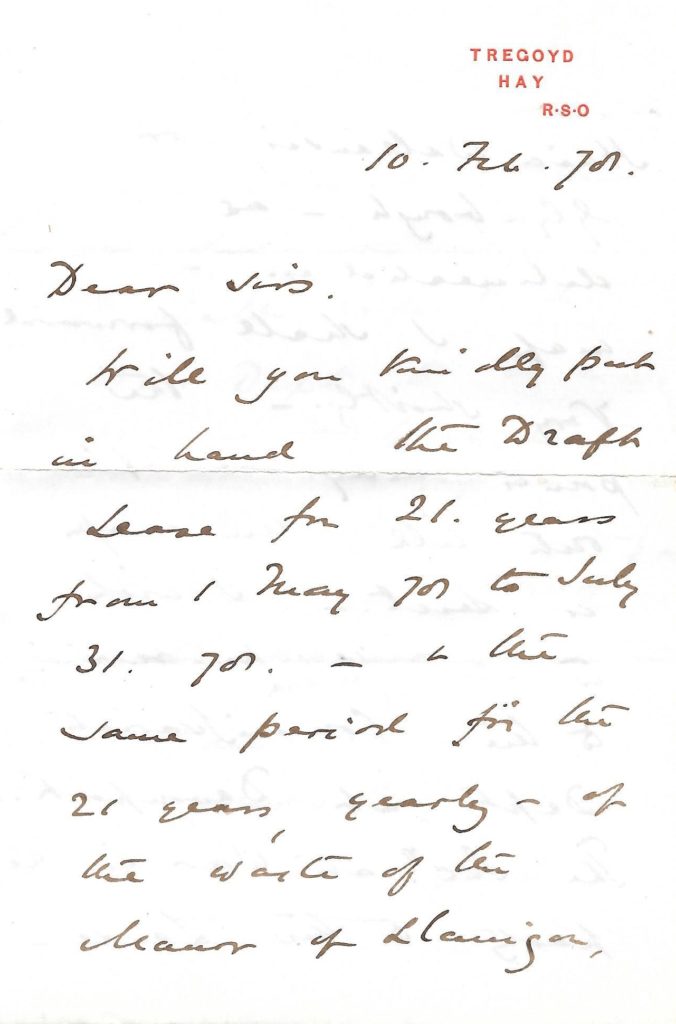 TREGOYD
HAY
R·S·O
10. Feb. 78.
Dear Sirs.
Will you kindly put
in hand the Draft
Lease for 21. years
from 1 May 78 to July
31. 78. — & the
same period for the
21 years, yearly — of
the waste of the
Manor of Llanigon,